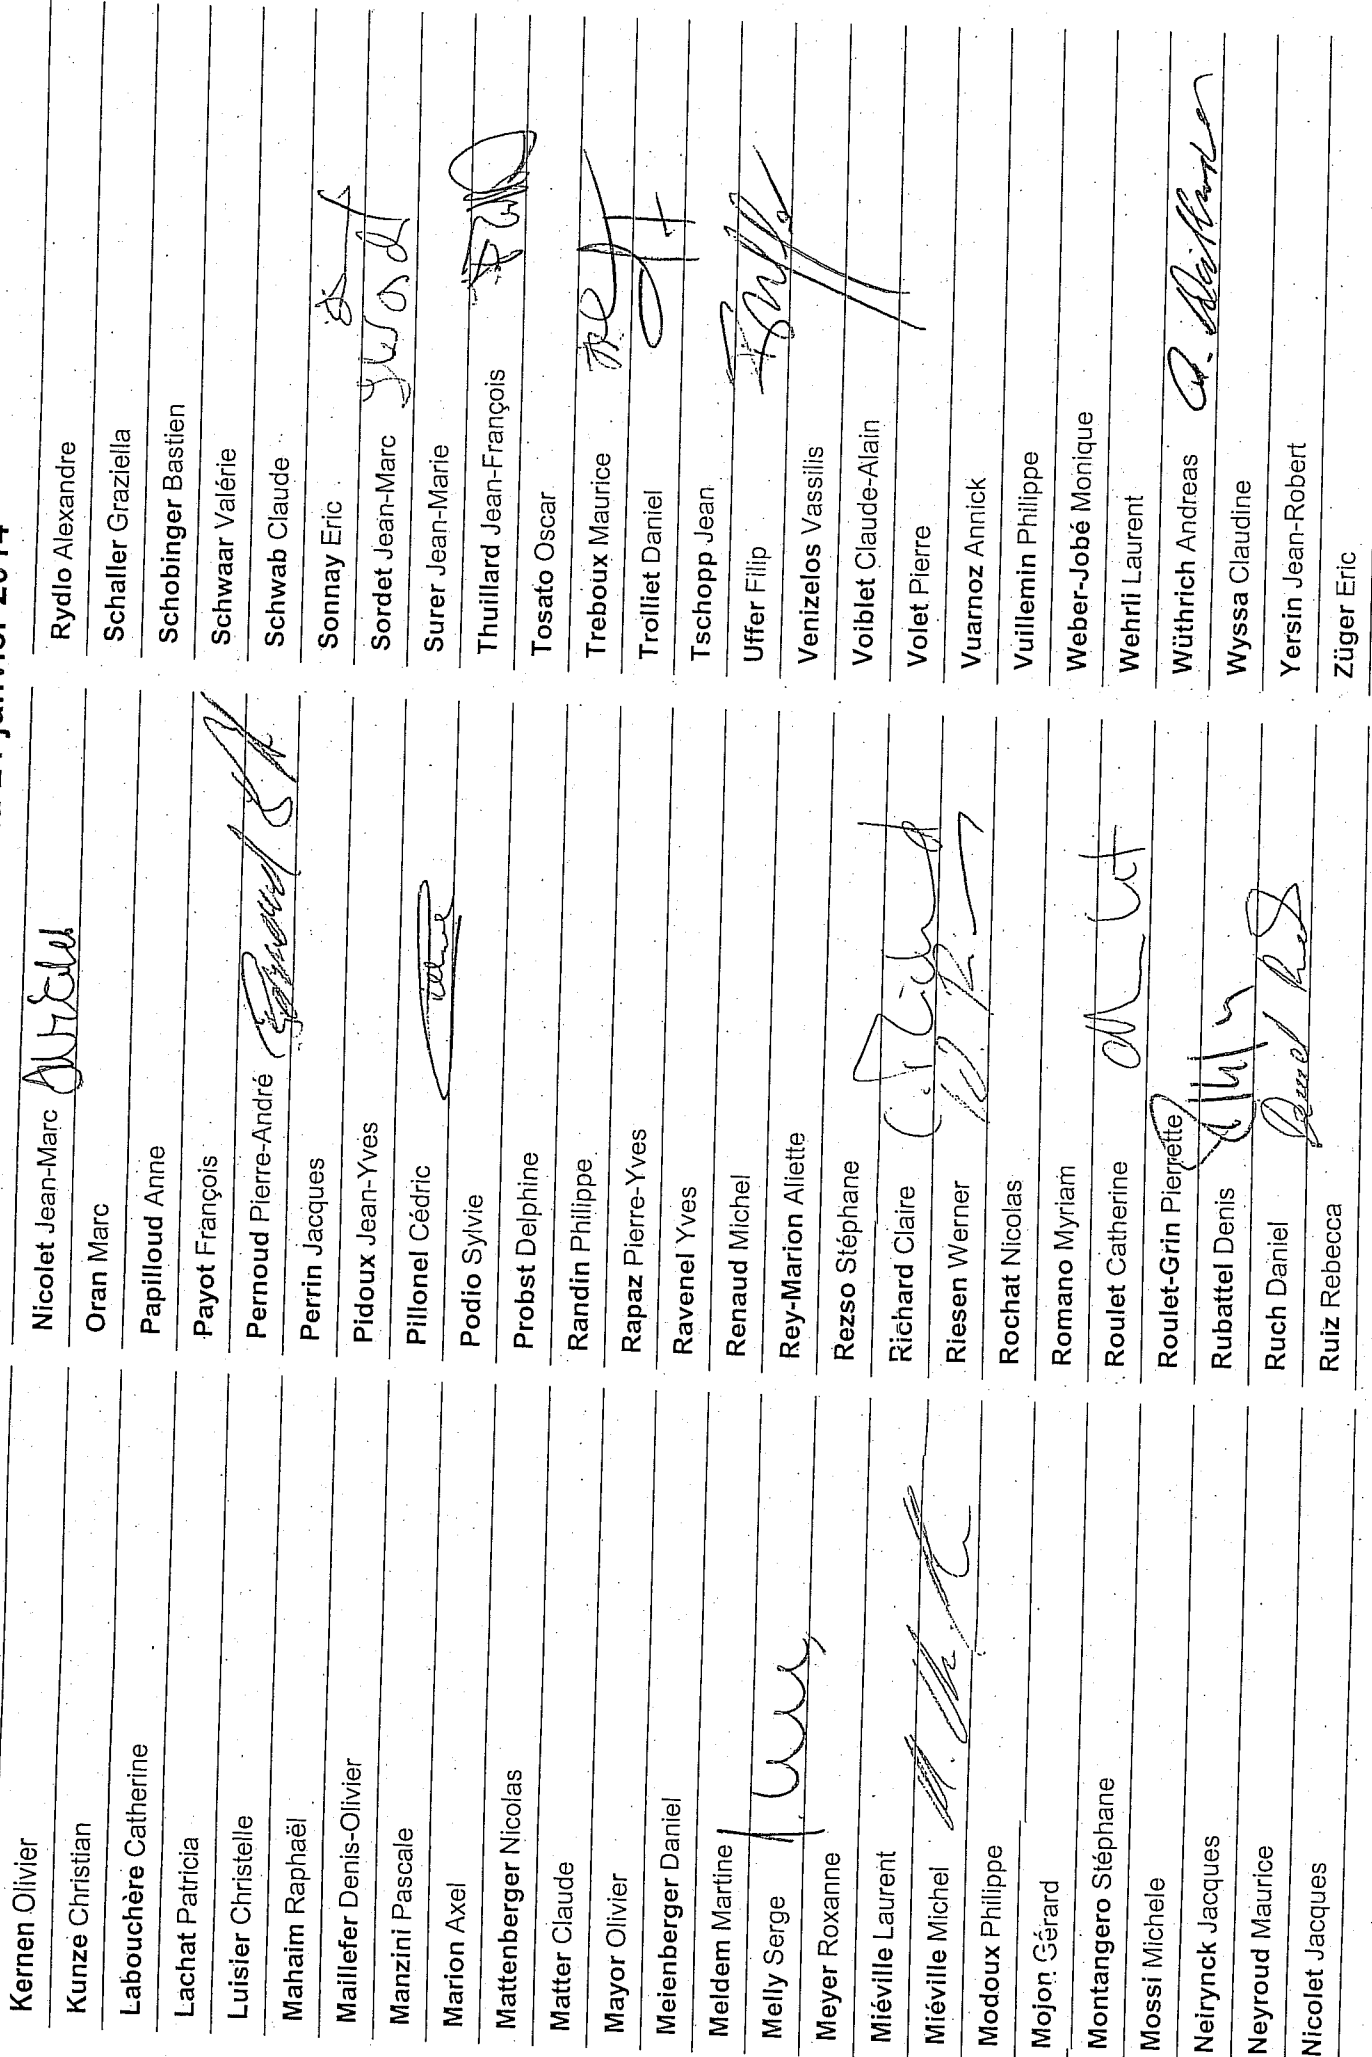 janvier 2014
Kernen Olivier
Kunze Christian
Labouchère Catherine
Lachat Patricia
Luisier Christelle
Mahaim Raphaël
Maillefer Denis-Olivier
Manzini Pascale
Marion Axel
Mattenberger Nicolas
Matter Claude
Mayor Olivier
Meienberger Daniel
Meldem Martine
Melly Serge
Meyer Roxanne
Miéville Laurent
Miéville Michel
Modoux Philippe
Mojon Gérard
Montangero Stéphane
Mossi Michele
Neirynck Jacques
Neyroud Maurice
Nicolet Jacques
Nicolet Jean-Marc
Oran Marc
Papilloud Anne
Payot François
Pernoud Pierre-André
Perrin Jacques
Pidoux Jean-Yves
Pillonel Cédric
Podio Sylvie
Probst Delphine
Randin Philippe
Rapaz Pierre-Yves
Ravenel Yves
Renaud Michel
Rey-Marion Aliette
Rezso Stéphane
Richard Claire
Riesen Werner
Rochat Nicolas
Romano Myriam
Roulet Catherine
Roulet-Grin Pierrette
Rubattel Denis
Ruch Daniel
Ruiz Rebecca
Rydlo Alexandre
Schaller Graziella
Schobinger Bastien
Schwaar Valérie
Schwab Claude
Sonnay Eric
Sordet Jean-Marc
Surer Jean-Marie
Thuillard Jean-François
Tosato Oscar
Treboux Maurice
Trolliet Daniel
Tschopp Jean
Uffer Filip
Venizelos Vassilis
Voiblet Claude-Alain
Volet Pierre
Vuarnoz Annick
Vuillemin Philippe
Weber-Jobé Monique
Wehrli Laurent
Wüthrich Andreas
Wyssa Claudine
Yersin Jean-Robert
Züger Eric